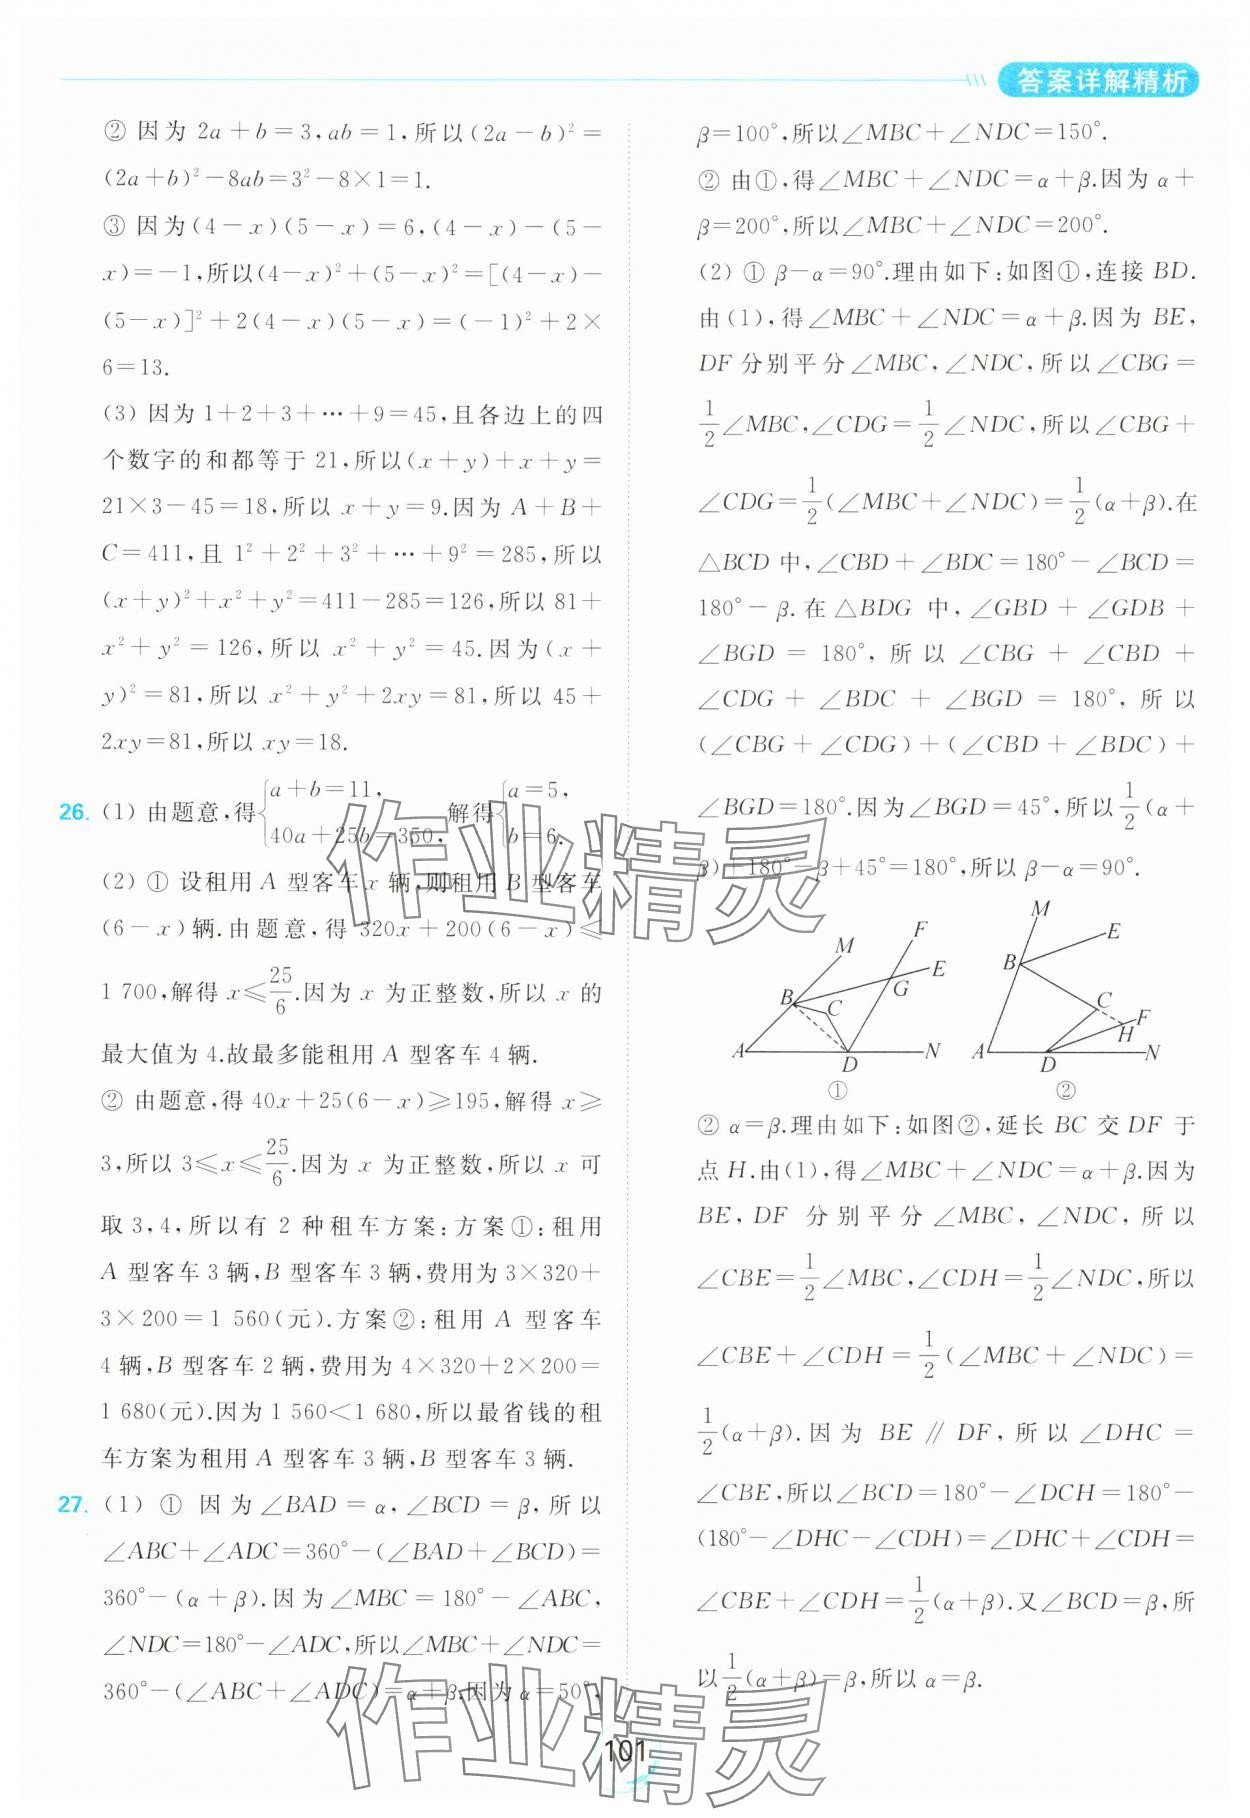 答案详解精析
② 因为 2a+b=3,ab=1,所以(2a-b)²=
(2a+b)²-8ab=3²-8×1=1.
③ 因为(4-x)(5-x)=6,(4-x)-(5-
x)=-1,所以(4-x)²+(5-x)²=[(4-x)-
(5-x)]²+2(4-x)(5-x)=(-1)²+2×
6=13.
(3) 因为1+2+3+…+9=45,且各边上的四
个数字的和都等于21,所以(x+y)+x+y=
21×3-45=18,所以 x+y=9.因为 A+B+
C=411,且 1²+2²+3²+…+9²=285,所以
(x+y)²+x²+y²=411-285=126,所以81+
x²+y²=126,所以 x²+y²=45.因为(x+
y)²=81,所以 x²+y²+2xy=81,所以45+
2xy=81,所以 xy=18.
26. (1) 由题意,得{a+b=11, 40a+25b=350, 解得{a=5, b=6.
(2) ① 设租用 A 型客车 x 辆,则租用 B 型客车
(6-x)辆.由题意,得 320x+200(6-x)≤
1 700,解得 x≤25/6.因为 x 为正整数,所以 x 的
最大值为4.故最多能租用 A 型客车4辆.
② 由题意,得40x+25(6-x)≥195,解得 x≥
3,所以3≤x≤25/6.因为 x 为正整数,所以 x 可
取3,4,所以有2种租车方案:方案①:租用
A 型客车3辆,B 型客车3辆,费用为3×320+
3×200=1 560(元).方案②:租用 A 型客车
4辆,B 型客车2辆,费用为4×320+2×200=
1 680(元).因为1 560<1 680,所以最省钱的租
车方案为租用 A 型客车3辆,B 型客车3辆.
27. (1) ① 因为∠BAD=α,∠BCD=β,所以
∠ABC+∠ADC=360°-(∠BAD+∠BCD)=
360°-(α+β).因为∠MBC=180°-∠ABC,
∠NDC=180°-∠ADC,所以∠MBC+∠NDC=
360°-(∠ABC+∠ADC)=α+β.因为α=50°,
β=100°,所以∠MBC+∠NDC=150°.
② 由①,得∠MBC+∠NDC=α+β.因为α+
β=200°,所以∠MBC+∠NDC=200°.
(2) ① β-α=90°.理由如下:如图①,连接 BD.
由(1),得∠MBC+∠NDC=α+β.因为 BE,
DF 分别平分∠MBC,∠NDC,所以∠CBG=
1/2∠MBC,∠CDG=1/2∠NDC,所以∠CBG+
∠CDG=1/2(∠MBC+∠NDC)=1/2(α+β).在
△BCD 中,∠CBD+∠BDC=180°-∠BCD=
180°-β.在△BDG 中,∠GBD+∠GDB+
∠BGD=180°,所以∠CBG+∠CBD+
∠CDG+∠BDC+∠BGD=180°,所以
(∠CBG+∠CDG)+(∠CBD+∠BDC)+
∠BGD=180°.因为∠BGD=45°,所以1/2(α+
β)+180°-β+45°=180°,所以β-α=90°.
M F E B G C A D N ①
M E B C F H A D N ②
② α=β.理由如下:如图②,延长 BC 交 DF 于
点 H.由(1),得∠MBC+∠NDC=α+β.因为
BE,DF 分别平分∠MBC,∠NDC,所以
∠CBE=1/2∠MBC,∠CDH=1/2∠NDC,所以
∠CBE+∠CDH=1/2(∠MBC+∠NDC)=
1/2(α+β).因为 BE∥DF,所以∠DHC=
∠CBE,所以∠BCD=180°-∠DCH=180°-
(180°-∠DHC-∠CDH)=∠DHC+∠CDH=
∠CBE+∠CDH=1/2(α+β).又∠BCD=β,所
以1/2(α+β)=β,所以α=β.
作业精灵
作业精灵
101